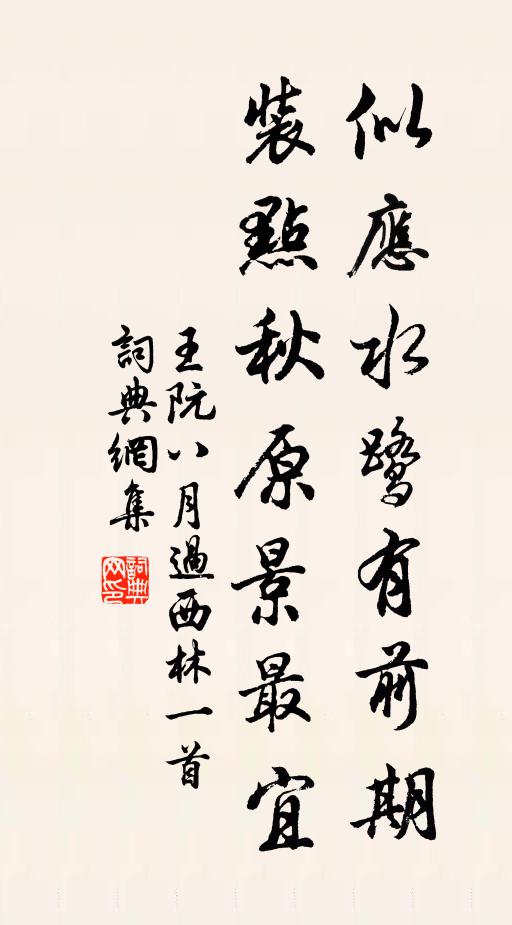 似應水鹭有前期
裝點秋原景最宜
王阮八月過西林一首
詞典網集
詞典网印